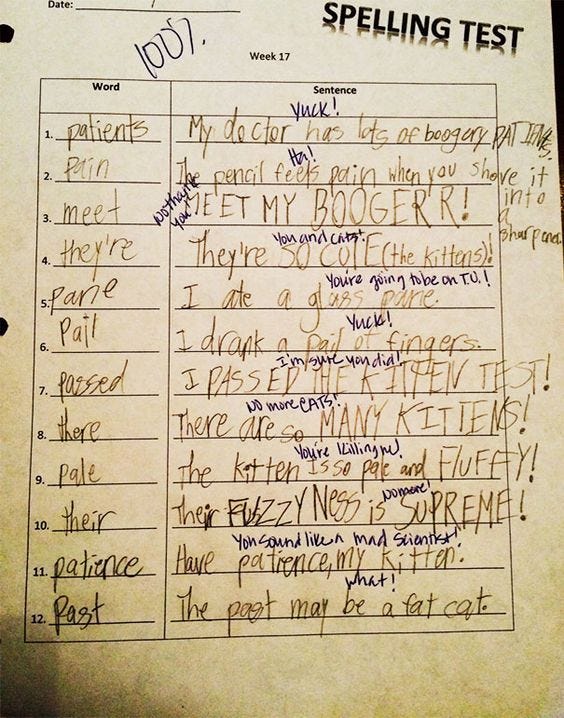 Date:
SPELLING TEST
100%
Week 17
Word Sentence
Yuck!
1. patients My doctor has lots of boogery PATIENTS.
Ha!
2. pain The pencil feels pain when you shove it into a sharpener.
No thank you!
3. meet MEET MY BOOGER'R!
You and cats!
4. they're They're SO CUTE (the kittens)!
You're going to be on T.V.!
5. pane I ate a glass pane.
Yuck!
6. Pail I drank a pail of fingers.
I'm sure you did!
7. passed I PASSED THE KITTEN TEST!
NO more CATS!
8. there There are so MANY KITTENS!
You're killing me!
9. pale The kitten is so pale and FLUFFY!
No more!
10. their Their FUZZYNess is SUPREME!
You sound like a mad scientist!
11. patience Have patience, my kitten.
What!
12. Past The past may be a fat cat.